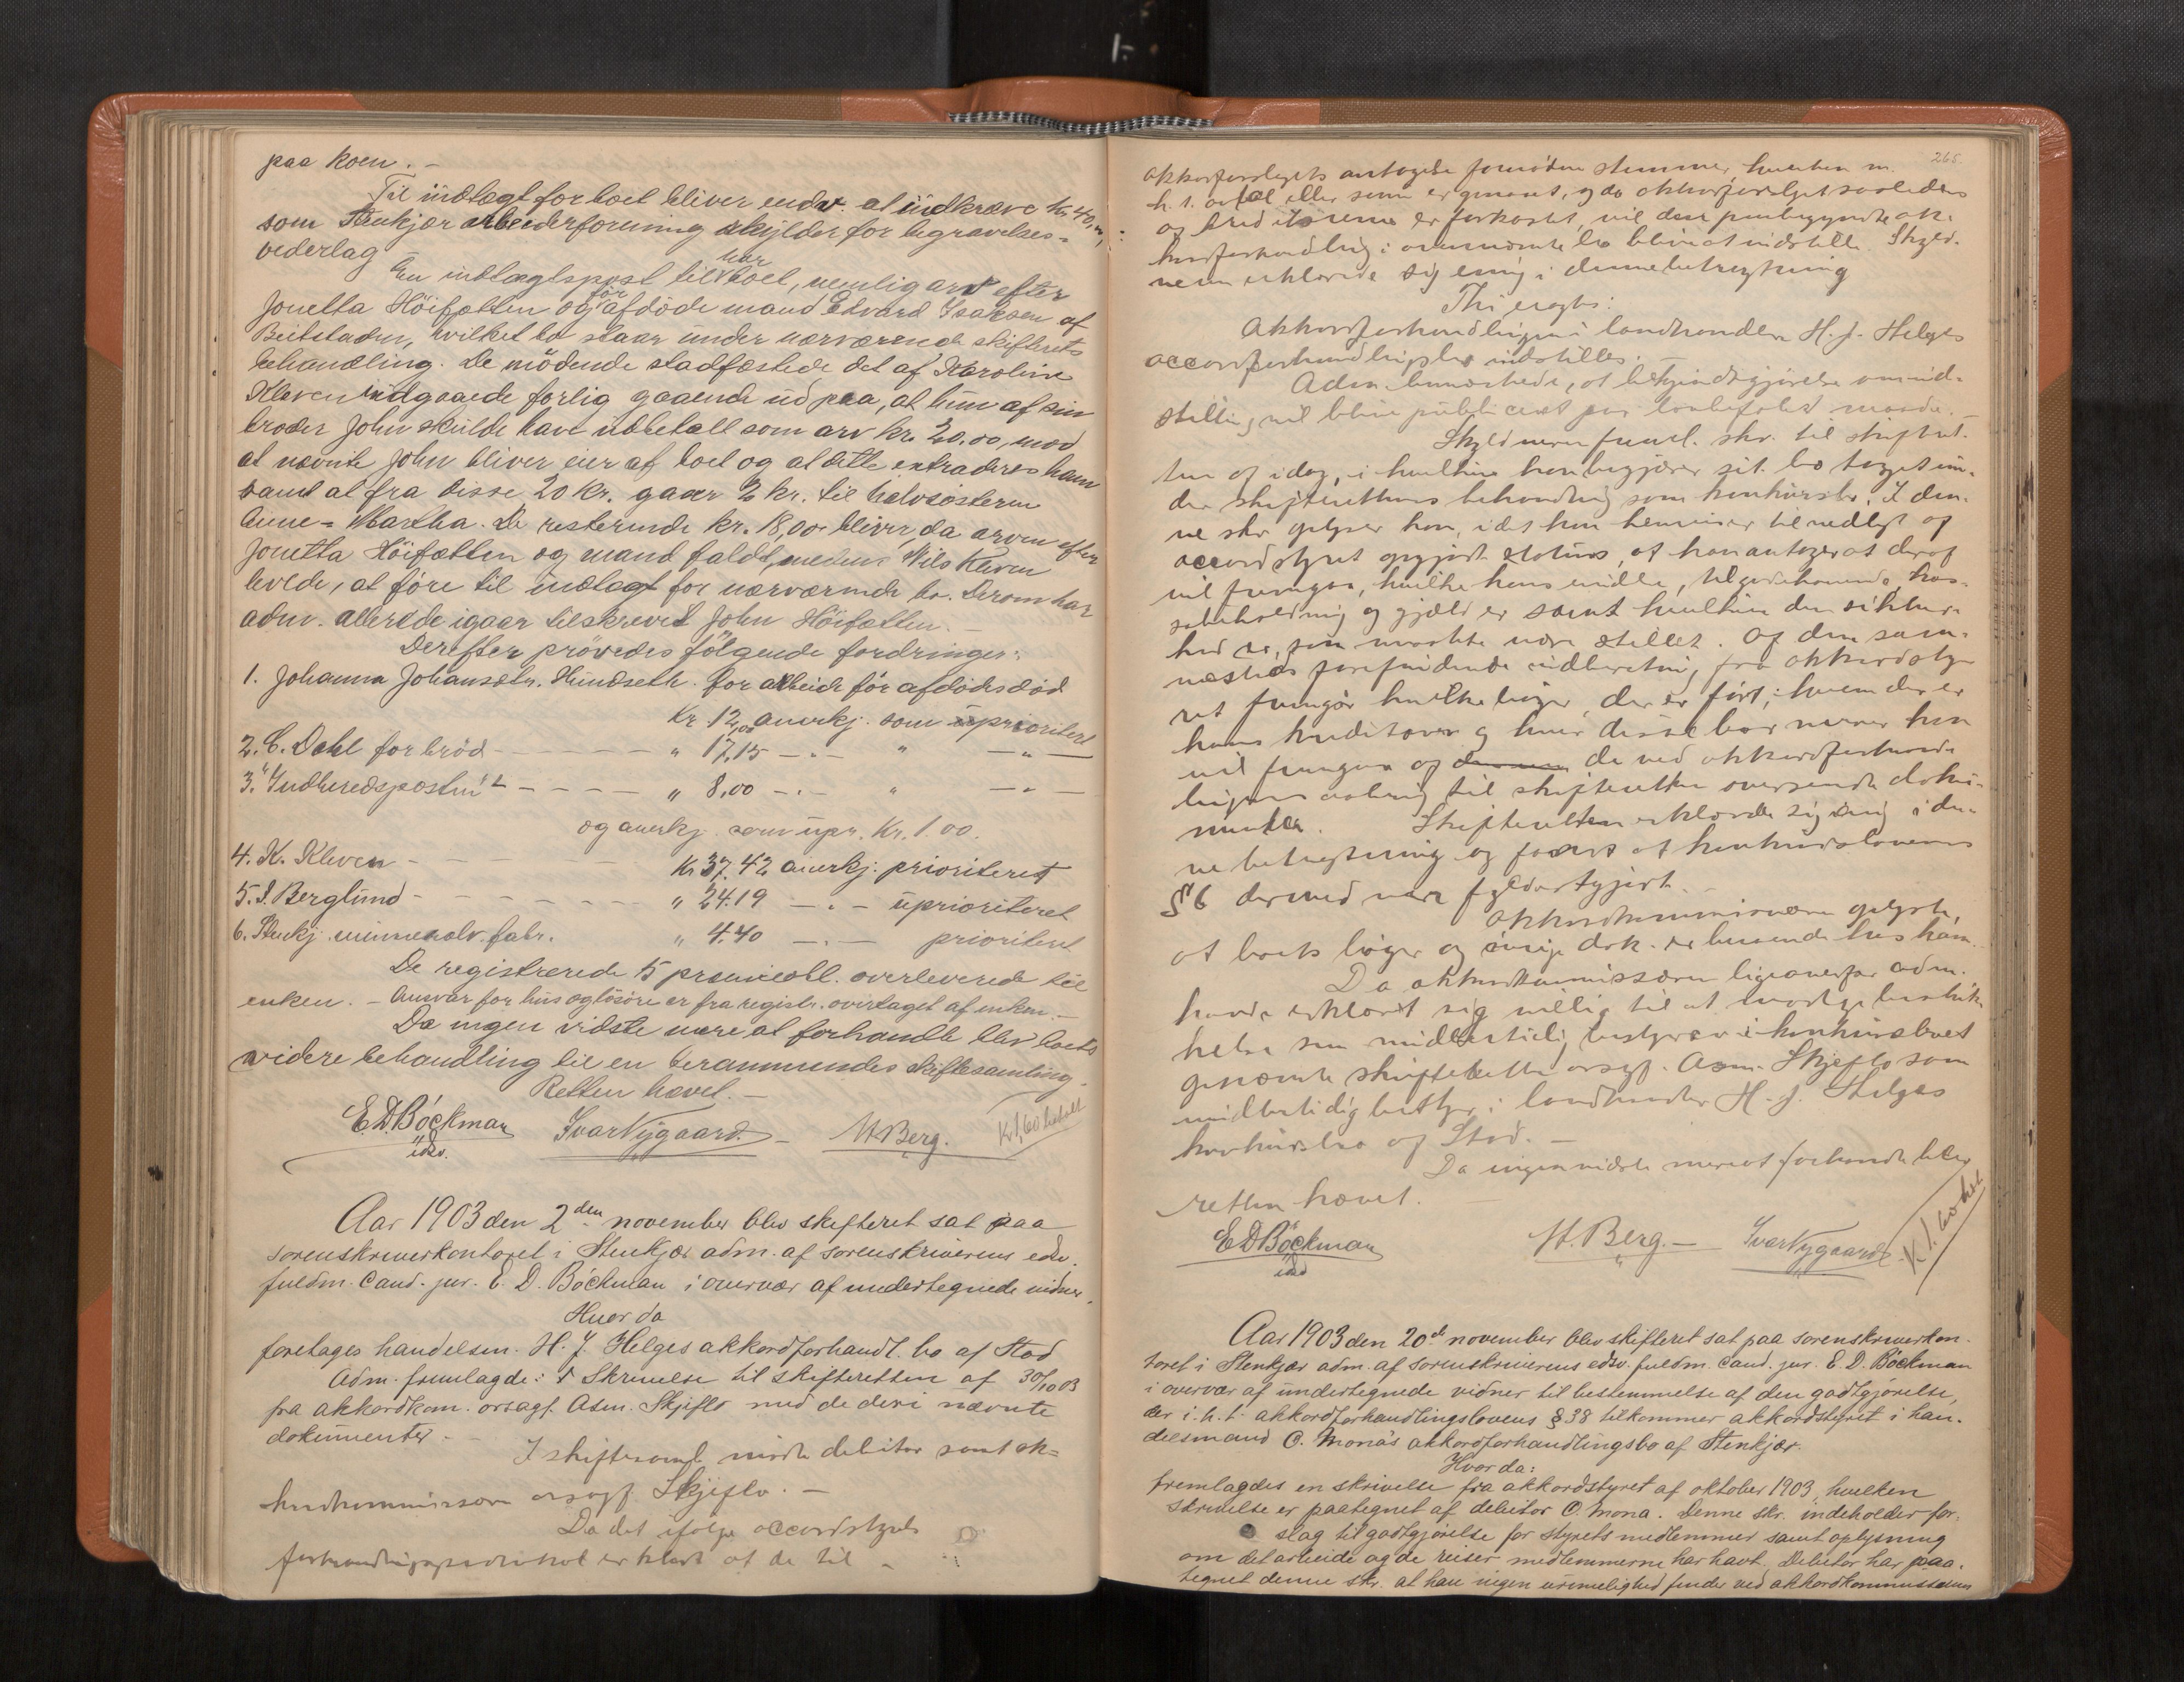 paa koen. -
Til indtægt for boet bliver endv. at indkræve kr. 40,00,
som Stenkjær arbeiderforening skylder for begravelses=
vederlag
En indtægtspost til har boet, nemlig arv efter
Jonetta Höifætten og før afdöde mand Edvard Isaksen af
Beitstaden, hvilket bo staar under nærværende skifterets
behandling. De mödende stadfæstede det af Karoline
Kleven indgaaede forlig gaaende ud paa, at hun af sin
broder John skulde have udbetalt som arv kr. 20.00, mod
at nævnte John bliver eier af boet og at dette extraderes ham
samt at fra disse 20 kr. gaar 2 kr. til halvsösteren
Anne=Martha. De resterende kr. 18,00 bliver, da arven efter
Jonetta Höifætten og mand faldt, medens Nils Kleven
levede, at före til indtægt for nærværende bo. Derom har
adm. allerede igaar tilskrevet John Höifætten. -
Derefter prövedes fölgende fordringer:
1. Johanna Johansdtr. Hundseth. for arbeide för afdödes död
Kr. 12,00 anerkj. som uprioritert
2. C. Dahl for bröd - - - - " 17,15 - . - " - " -
3. "Indheredsposten" - - - - " 8,00 - . - " - " -
og anerkj. som upr. Kr. 1.00.
4. K. Kleven - - - - Kr. 37.42 anerkj. prioriteret
5. I. Berglund - - - - " 24.19 - . - uprioriteret
6. Stenkj. mineralv. fabr. " 4.40 - . - prioritert
De registrerede 15 præmieobl. overleverede til
enken. - Ansvar for hus og lösöre er fra registr. overtaget af enken. -
Da ingen vidste mere at forhandle blev boets
videre behandling til en berammendes skiftesamling.
Retten hævet. -
E.D. Böckman
edsv.
Ivar Nygaard. -
M. Berg.
Kr 1,60 betalt
Aar 1903 den 2den november blev skifteret sat paa
sorenskriverkontoret i Stenkjær adm. af sorenskriverens edsv.
fuldm. cand. jur. E. D. Böckman i overvær af undertegnede vidner.
Hvor da
foretages handelsm. H. J. Helges akkordforhandl. bo af Stod
Adm. fremlagde: 1 Skrivelse til skifteretten af 30/10 03
fra akkordkom. orsagf. Asm. Skjeflo med de deri nævnte
dokumenter. -
I skiftesaml. mødte debitor samt ak=
kordkommissær orsagf. Skjeflo. -
Da det ifølge accordstyrets
forhandlingsprotokol er klart at de til -
265.
akkordforslagets antagelse fornødne stemmer, hverken m.
h. t. antal eller sum er opnaaet, og da akkordforslaget saaledes
af kreditorerne er forkastet, vil den paabegyndte ak-
kordforhandling i ovennævnte bo blive at indstille. Skyld-
neren erklærede sig enig i denne betragtning
Thi eragtes:
Akkordforhandlingen i landhandler H. J. Helges
accordforhandlingsbo indstilles. -
Adm. bemærkede, at bekjendtgjørelse om ind-
stilling vil blive publiceret paa lovbefalet maade. -
Skyldneren freml. skr. til skifteret-
ten af idag, i hvilken han begjærer sit bo taget un-
der skifterettens behandling som konkursbo. I den-
ne skr. oplyser han, idet han henviser til vedlagt af
accordstyret opgjort status, at han antager at deraf
vil fremgaa, hvilke hans midler, tilgodehavende, kas-
sabeholdning og gjæld er samt hvilken den sikker-
hed er, som maatte være stillet. Af den sam-
mesteds forefindende indberetning fra akkordsty-
ret fremgår hvilke bøger, der er ført; hvem der er
hans kreditorer og hvor disse bor mener han
vil fremgaa af de ved akkordforhand-
lingens aabning til skifteretten oversendte doku-
menter. Skifteretten erklærede sig enig i den-
ne betragtning og fandt at konkurslovens
§ 6 dermed var fyldestgjort. -
Akkordkommissæren oplyste,
at boets bøger og øvrige dok. er beroende hos ham.
Da akkordkommissæren ligeoverfor adm.
havde erklæret sig villig til at modtage beskik-
kelse som midlertidig bestyrer i konkursboet
opnævnte skifteretten orsgf. Asm. Skjeflo som
midlertidig bestyrer i landhandler H. J. Helges
konkursbo af Stod. -
Da ingen vidste mere at forhandle blev
retten hævet. -
E.D. Böckman
edsv
M. Berg. -
Ivar Nygaard.
Kr. 1.60 bet
Aar 1903 den 20de november blev skifteret sat paa sorenskriverkon-
toret i Stenkjær adm. af sorenskriverens edsv. fuldm. cand. jur. E. D. Böckman
i overvær af undertegnede vidner til bestemmelse af den godtgjørelse,
der i. h. t. akkordforhandlingslovens § 38 tilkommer akkordstyret i han-
delsmand O. Mona's akkordforhandlingsbo af Stenkjær.
Hvor da:
fremlagdes en skrivelse fra akkordstyret af oktober 1903, hvilken
skrivelse er paategnet af debitor O. Mona. Denne skr. indeholder for-
slag til godtgjørelse for styrets medlemmer samt oplysning
om det arbeide og de reiser medlemmerne har havt. Debitor har paa-
tegnet denne skr. at han ingen urimelighed finder ved akkordkommissæren